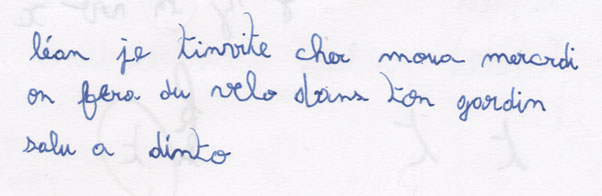 léan je tinvite cher moua mercrdi
on fera du velo dans ton gardin
salu a dinto